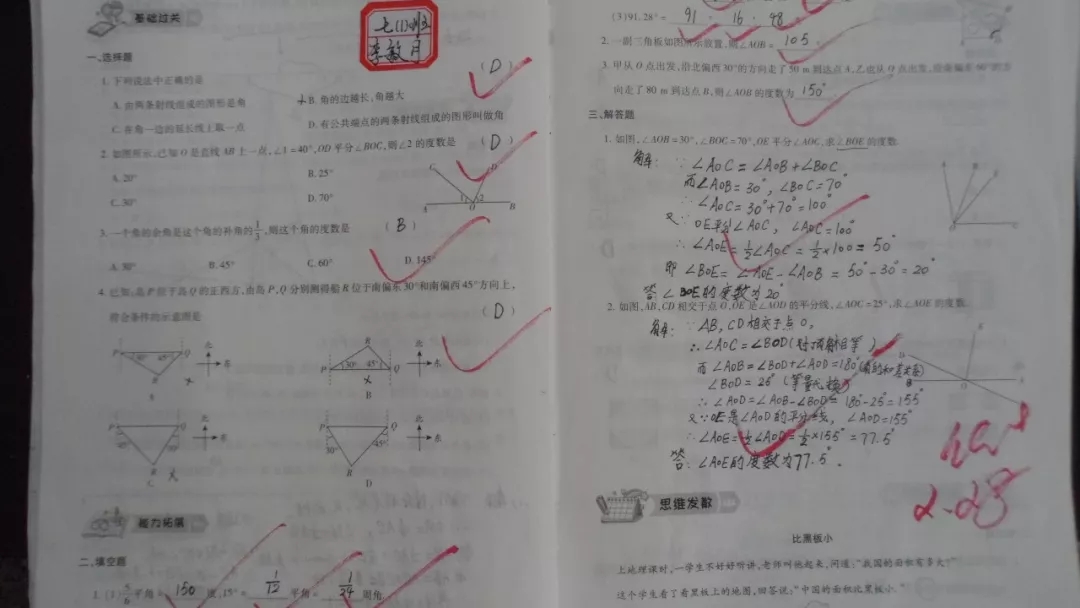 基础过关
七(1)班
李敏月
一、选择题
1. 下列说法中正确的是 (D)
A. 由两条射线组成的图形是角
B. 角的边越长,角越大
C. 在角一边的延长线上取一点
D. 有公共端点的两条射线组成的图形叫做角
2. 如图所示,已知O是直线AB上一点,∠1=40°,OD平分∠BOC,则∠2的度数是 (D)
A. 20°
B. 25°
C. 30°
D. 70°
C D
1 2
A O B
3. 一个角的余角是这个角的补角的1/3,则这个角的度数是 (B)
A. 30° B. 45° C. 60° D. 145°
4. 已知:岛P位于岛Q的正西方,由岛P,Q分别测得船R位于南偏东30°和南偏西45°方向上,
符合条件的示意图是 (D)
P Q R 北 东
P 30° 45° Q R 北 东
B
P Q 30° R 北 东
C
P Q 30° 45° R 北 东
D
能力拓展
二、填空题
1. (1) 5/6平角= 150 度,15°= 1/12 平角= 1/24 周角
(3)91.28°= 91 ° 16 ′ 48
2. 一副三角板如图所示放置,则∠AOB= 105
3. 甲从O点出发,沿北偏西30°的方向走了50 m到达点A,乙也从O点出发,沿南偏东
向走了80 m到达点B,则∠AOB的度数为 150°
三、解答题
1. 如图,∠AOB=30°,∠BOC=70°,OE平分∠AOC,求∠BOE的度数.
解: ∵∠AOC=∠AOB+∠BOC
而∠AOB=30°,∠BOC=70°
∴∠AOC=30°+70°=100°
又∵OE平分∠AOC,∠AOC=100°
∴∠AOE=1/2∠AOC=1/2×100=50°
即∠BOE=∠AOE-∠AOB=50°-30°=20°
答∠BOE的度数为20°
2. 如图,AB,CD相交于点O,OE是∠AOD的平分线,∠AOC=25°,求∠AOE的度数.
解: ∵AB,CD相交于点O,
∴∠AOC=∠BOD(对顶角相等)
而∠AOB=∠BOD+∠AOD=180°(角的和差关系)
∠BOD=25°(等量代换)
∴∠AOD=∠AOB-∠BOD=180°-25°=155°
又∵OE是∠AOD的平分线,∠AOD=155°
∴∠AOE=1/2∠AOD=1/2×155°=77.5°
答:∠AOE的度数为77.5°.
思维发散
比黑板小
上地理课时,一学生不好好听讲,老师叫他起来,问道:"我国的面积有多大?"
这个学生看了看黑板上的地图,回答说:"中国的面积比黑板小."